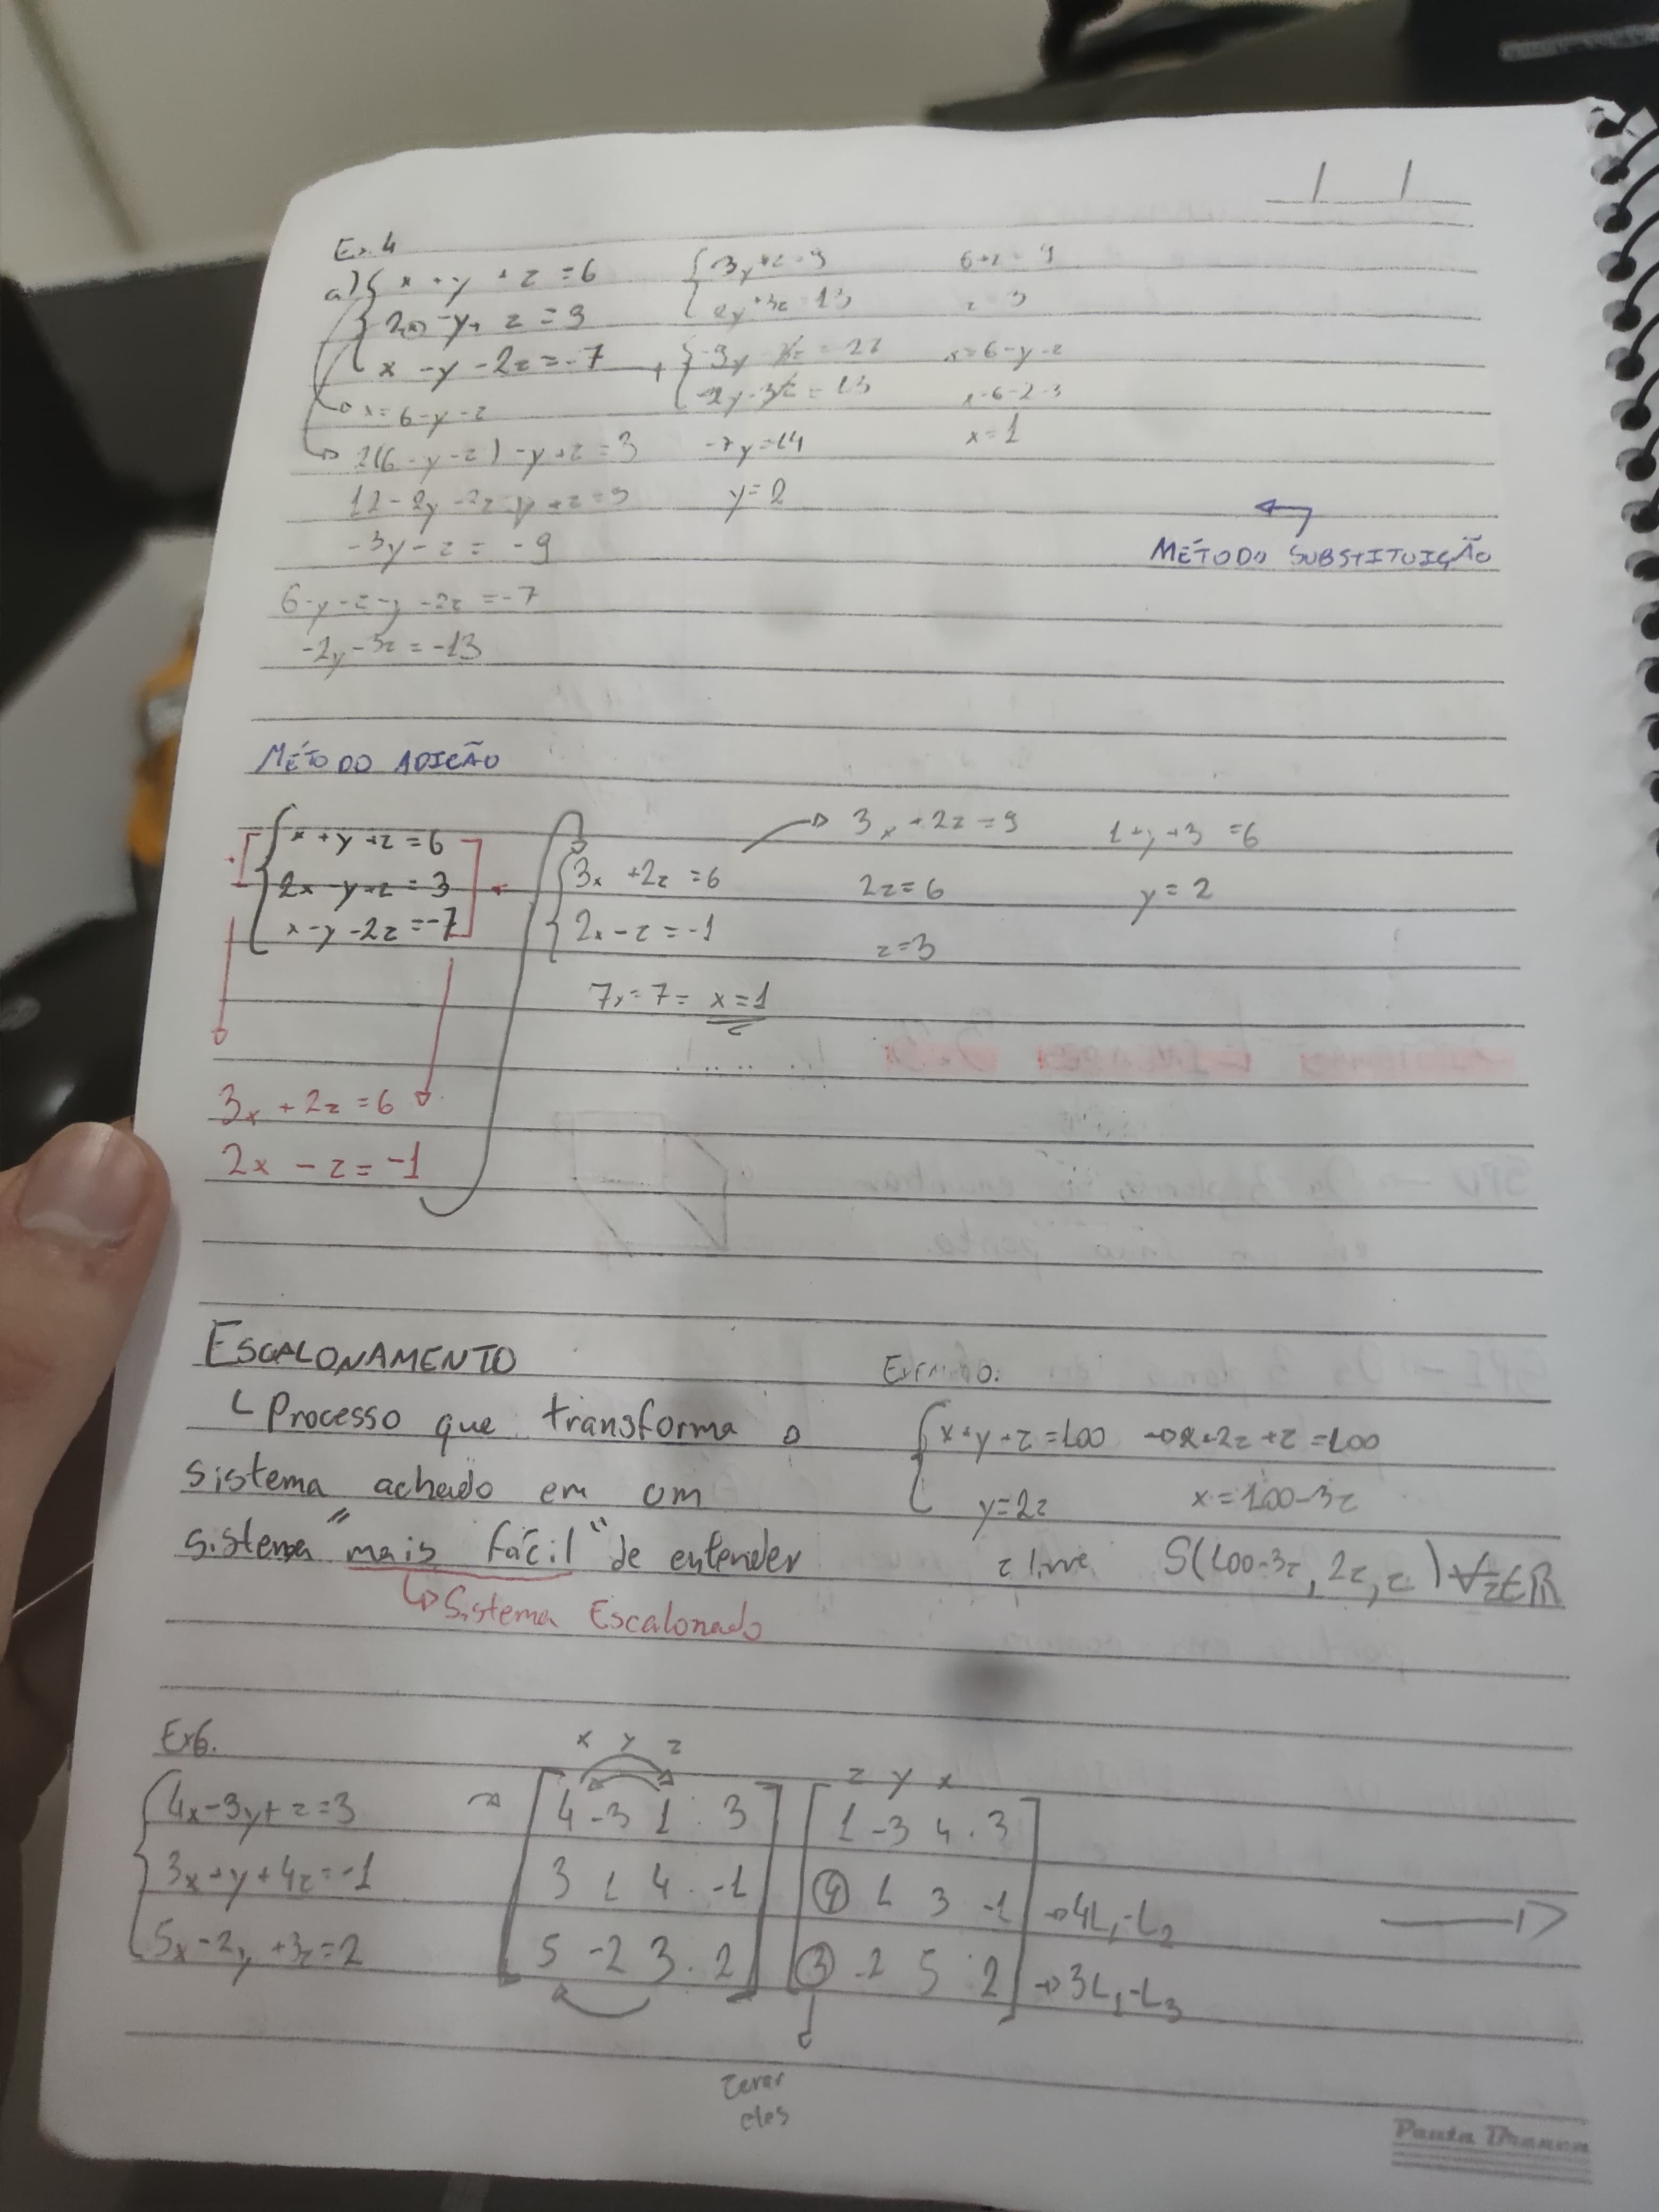 Ex. 4
a) { x + y + z = 6
2(x) - y + z = 3
x - y - 2z = -7
x = 6 - y - z
2(6 - y - z) - y + z = 3
12 - 2y - 2z - y + z = 3
-3y - z = -9
6 - y - z - y - 2z = -7
-2y - 3z = -13
{ 3y + z = 9
2y + 3z = 13
-7y = 14
y = 2
6 + z = 9
z = 3
x = 6 - y - z
x = 6 - 2 - 3
x = 1
MÉTODO SUBSTITUIÇÃO
MÉTODO ADIÇÃO
{ x + y + z = 6
2x - y + z = 3
x - y - 2z = -7
3x + 2z = 6
2x - z = -1
{ 3x + 2z = 6
2x - z = -1
7x = 7 = x = 1
3x + 2z = 9
2z = 6
z = 3
1 + y + 3 = 6
y = 2
ESCALONAMENTO
Processo que transforma o
sistema achado em um
sistema "mais fácil" de entender
Sistema Escalonado
Exemplo:
{ x + y + z = 100 → x + 2z + z = 100
y = 2z x = 100 - 3z
z livre S(100 - 3z, 2z, z) ∀z∈R
Ex6.
{ 4x - 3y + z = 3
3x + y + 4z = -1
5x - 2y + 3z = 2
x y z
4 -3 1 : 3
3 1 4 . -1
5 -2 3 . 2
z y x
1 -3 4 . 3
4 1 3 -1 → 4L1 - L2
3 -2 5 : 2 → 3L1 - L3
Zerar
eles
Pauta Branca